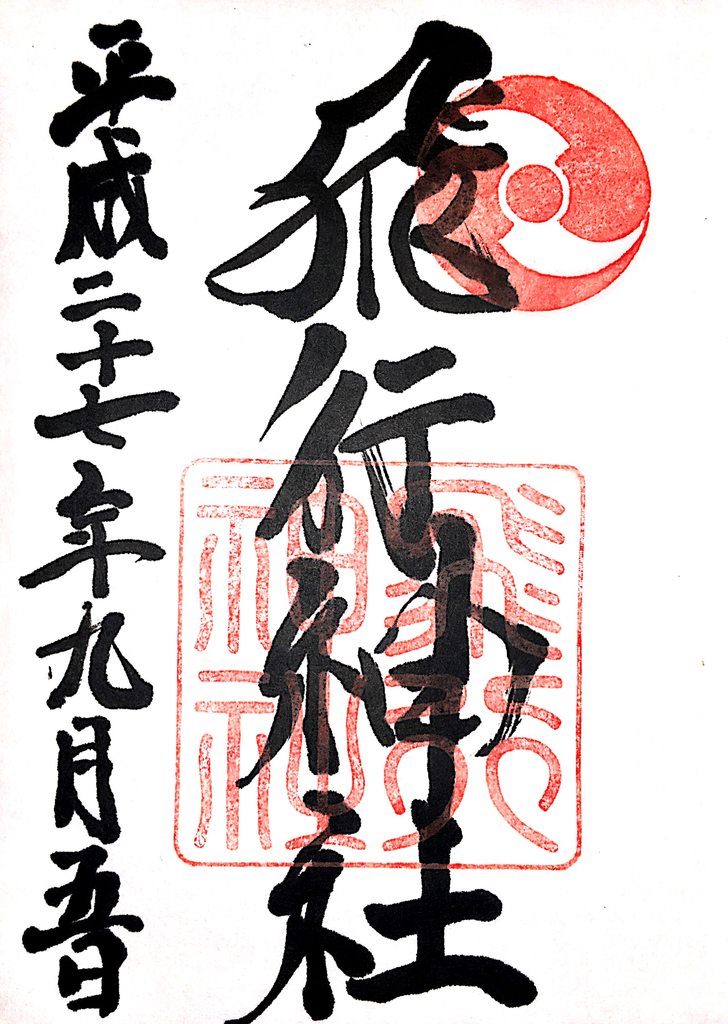 飛行神社
平成二十七年九月五日
飛行
神社